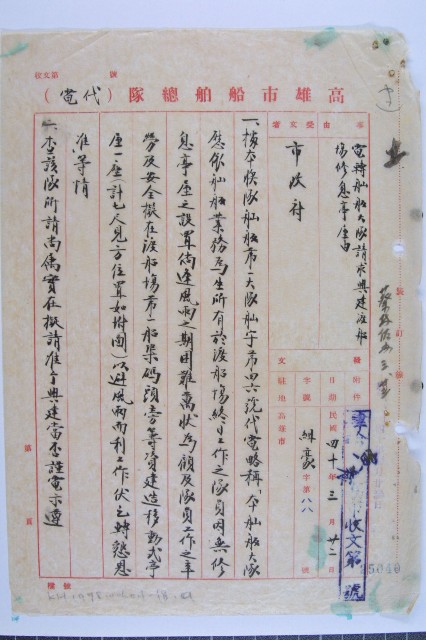 高雄市船舶總隊(代電)
事由
電轉舢舨大隊請求興建渡船
場修息亭座由
受文者
市政府
附件
日期 民國四十年三月廿二日
字號 組豪字第八八號
駐地 高雄市
一、據本總隊舢舨船市一大隊舢宇第四六號代電略稱「本舢舨大隊
應依舢舨業務為生所有於渡船場終日工作之隊員因無修
息亭座之設置倘逢風雨之期困難萬狀為顧及隊員工作之辛
勞及安全擬在渡船場第一船渠碼頭旁籌資建造移動式亭
座一座(計七尺見方位置如附圖)以避風雨而利工作伏乞轉懇恩
准等情
二、查該隊所請尚屬實在擬請准予興建當否謹電示遵
收文第 號
5040
裝訂線
第 頁